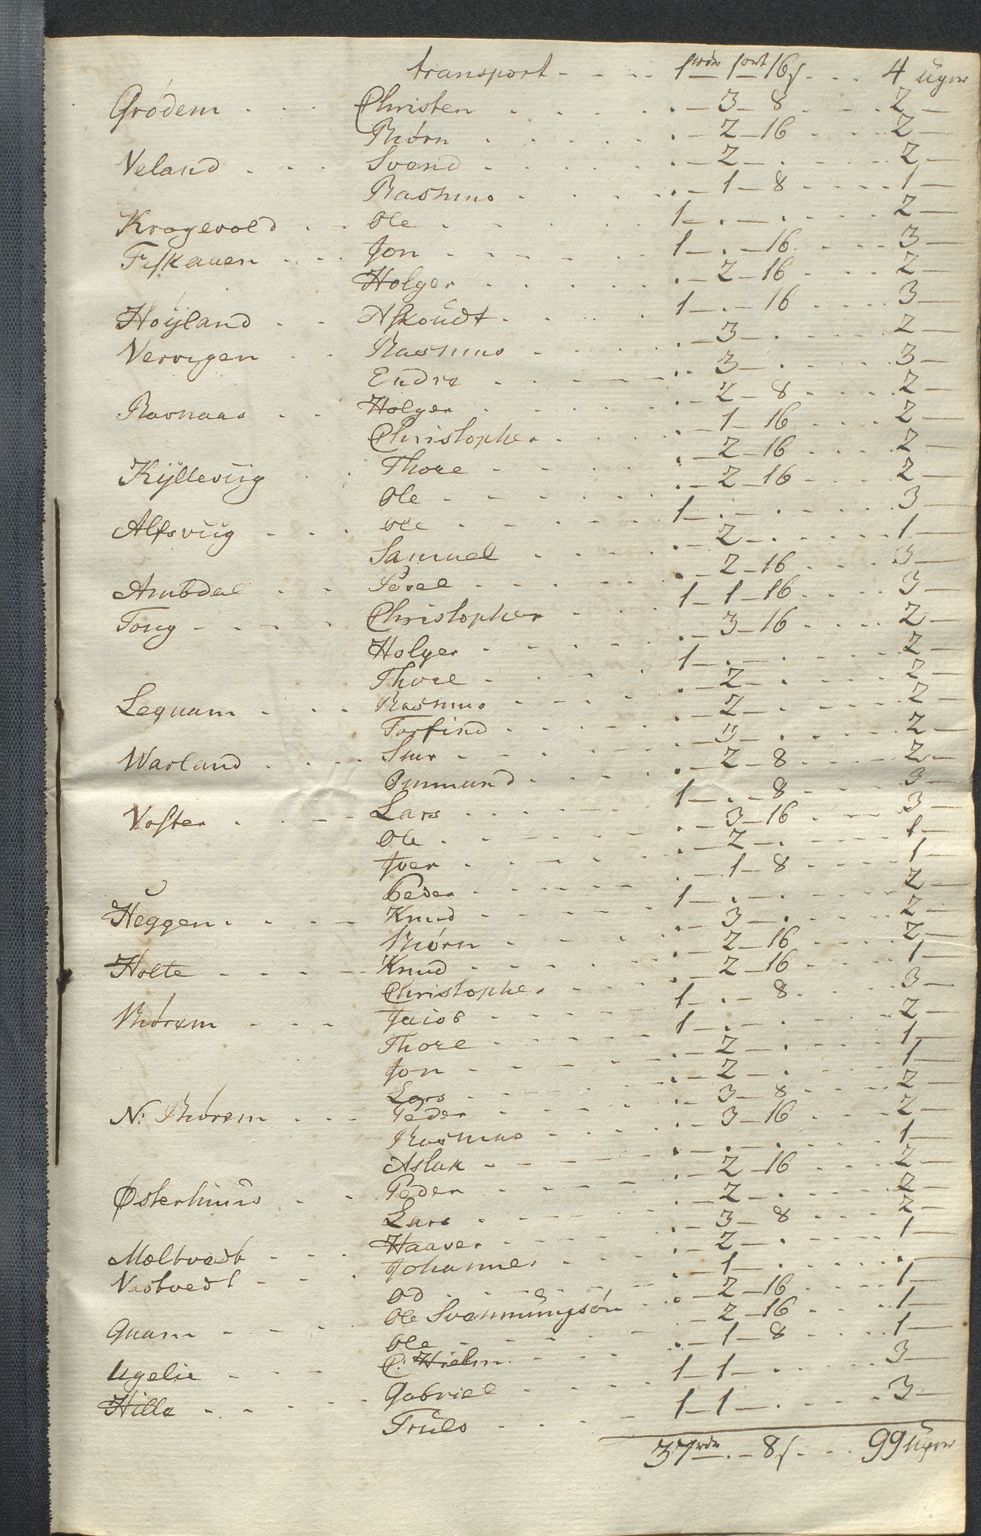 transport - - - - 1 rdr 1 ort 16 s - - - 4 ügre
Grödem - - - Christen - - - . _ 3 _ 8 - - - 2 _
Biørn - - - . _ 2 _ 16 - - - 2 _
Veland - - - Svend - - - . _ 2 _ . - - - 2 _
Rasmus - - - . _ 1 _ 8 - - - 1 _
Kragevold - - Ole - - - 1 _ . _ . - - - 2 _
Fiskaaen - - - Jon - - - 1 _ . _ 16 - - - 3 _
Holger - - - . _ 2 _ 16 - - - 2 _
Höÿland - - Askoudt - - - 1 _ . _ 16 - - - 3 _
Vervigen - - Rasmus - - - . _ 3 _ . - - - 2 _
Endre - - - . _ 3 _ . - - - 3 _
Ravnaas - - Holger - - - . _ 2 _ 8 - - - 2 _
Christopher - - - . _ 1 _ 16 - - - 2 _
Kÿlleviig - Thore - - - . _ 2 _ 16 - - - 2 _
Ole - - - . _ 2 _ 16 - - - 2 _
Alfsviig - - - ole - - - 1 _ . _ . - - - 3 _
Samuel - - - . _ 2 _ . - - - 1 _
Ambdal - - Povel - - - . _ 2 _ 16 - - - 3 _
Tong - - - - Christopher - - - 1 _ 1 _ 16 - - - 3 _
Holger - - - . _ 3 _ 16 - - - 2 _
Thore - - - 1 _ . _ . - - - 2 _
Leqvam - - - Rasmus - - - . _ 2 _ . - - - 2 _
Torfind - - - . _ 2 _ . - - - 2 _
Warland - - - Siur - - - . _ 3 _ . - - - 2 _
Omund - - - . _ 2 _ 8 - - - 2 _
Voster - - - Lars - - - 1 _ . _ 8 - - - 3 _
Ole - - - . _ 3 _ 16 - - - 3 _
Iver - - - . _ 2 _ . - - - 1 _
Peder - - - . _ 1 _ 8 - - - 1 _
Heggen - - - Knud - - - 1 _ . _ . - - - 2 _
Biørn - - - . _ 3 _ . - - - 2 _
Holte - - - - Knud - - - . _ 2 _ 16 - - - 2 _
Christopher - - - . _ 2 _ 16 - - - 1 _
Biørem - - - Jacob - - - 1 _ . _ 8 - - - 3 _
Thore - - - 1 _ . _ . - - - 2 _
Jon - - - . _ 2 _ . - - - 1 _
Lars - - - . _ 2 _ . - - - 1 _
N: Biørem - - - Peder - - - . _ 3 _ 8 - - - 2 _
Rasmus - - - . _ 3 _ 16 - - - 2 _
Aslak - - - . _ . _ . - - - 1 _
Østerhuus - - Peder - - - . _ 2 _ 16 - - - 2 _
Lars - - - . _ 2 _ . - - - 2 _
Haaver - - - . _ 3 _ 8 - - - 2 _
Moltvedt - - - Johannes - - - . _ 2 _ . - - - 1 _
Nastvedt - - od - - - . _ 1 _ . - - - .
Ole Svenningsön - - . _ 2 _ 16 - - - 1 _
Qvam - - - ole - - - . _ 2 _ 16 - - - 1 _
Ugelie - - - C: Hielm - - - . _ 1 _ 8 - - - 1 _
Hille - - - Gabriel - - - 1 _ 1 _ . - - - 3 _
Truls - - - 1 _ 1 _ . - - - 3 _
37 rdr . _ 8 s - - - 99 ügre